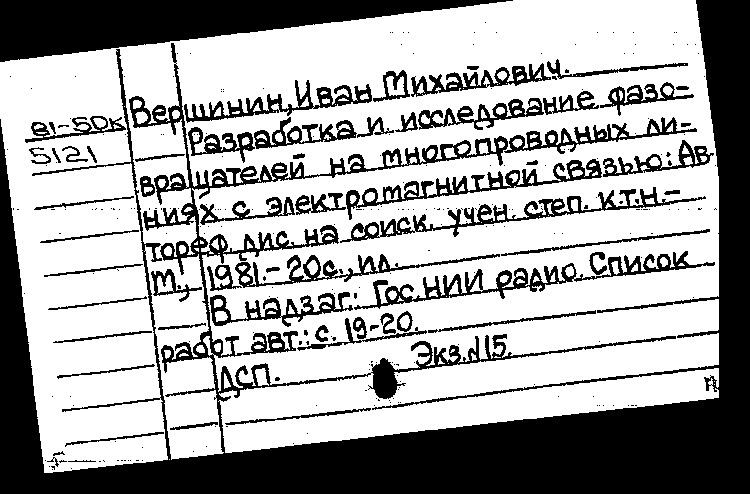 Вершинин, Иван Михайлович.
81-50к
5121
Разработка и исследование фазо-
вращателей на многопроводных ли-
ниях с электромагнитной связью: Ав
тореф. дис. на соиск. учен. степ. к.т.н.-
М., 1981.-20с., ил.
В надзаг.: Гос. НИИ радио. Список
работ авт.: с. 19-20.
ДСП. Экз.N15.